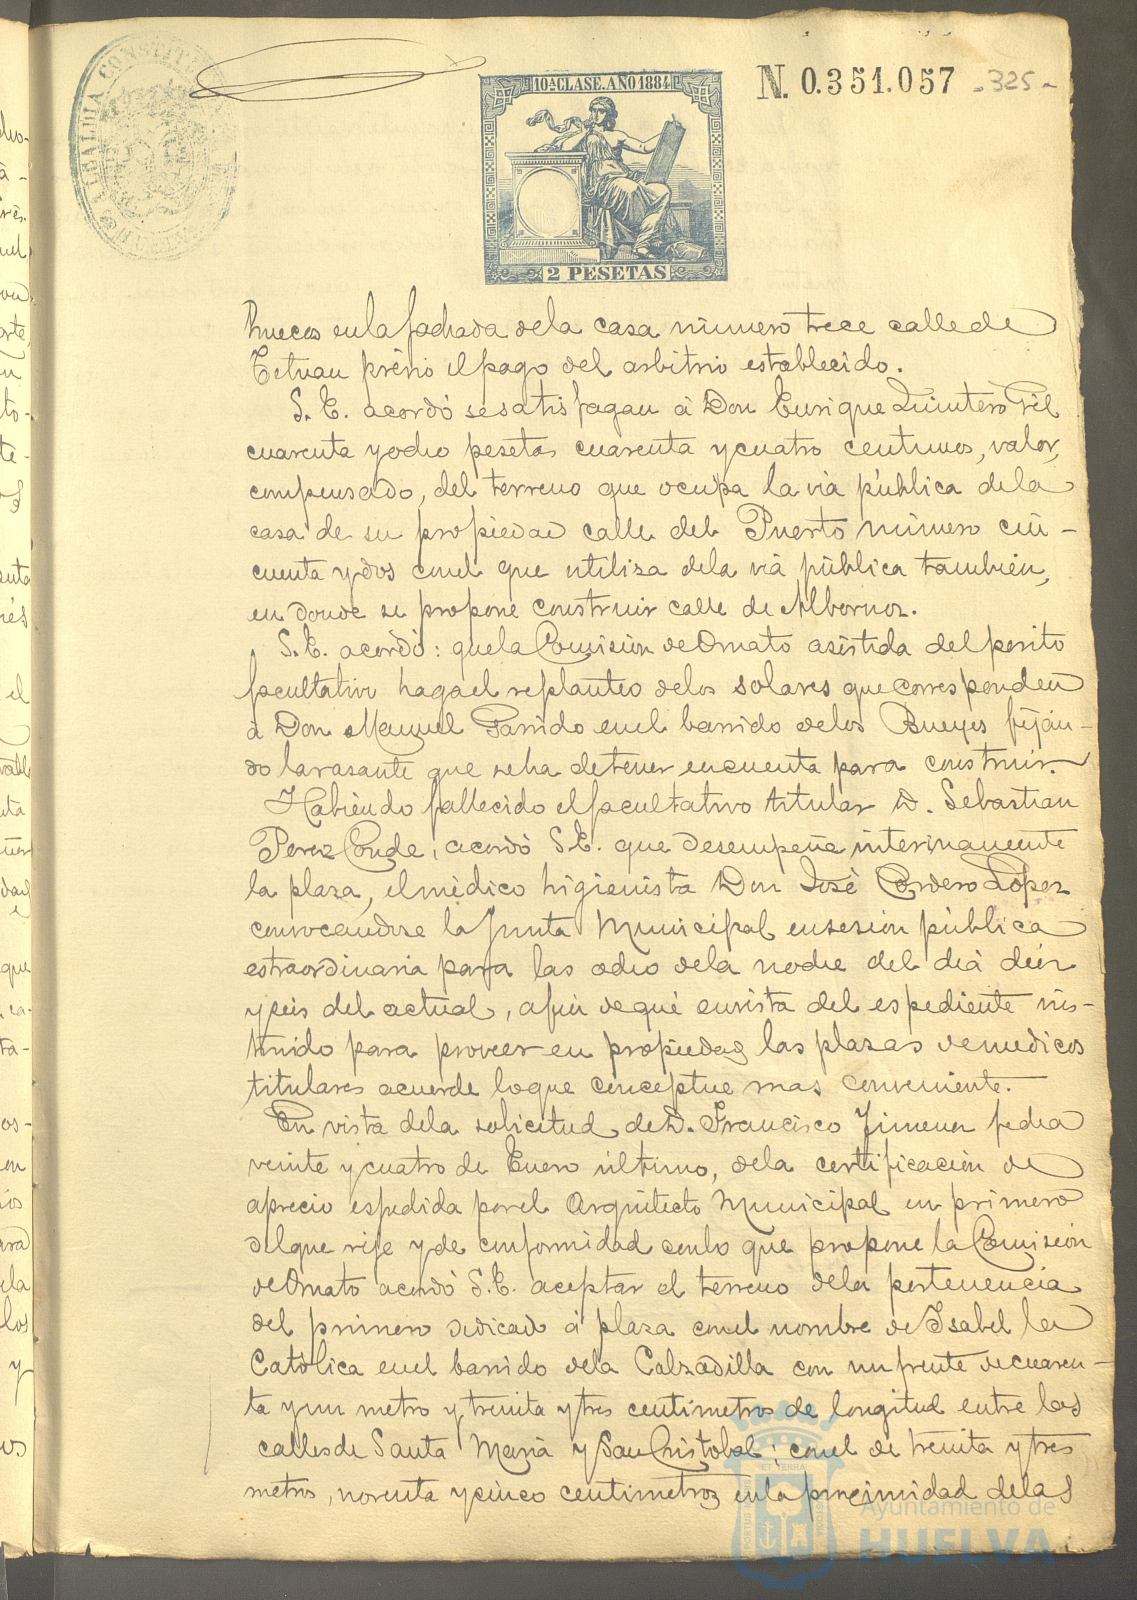 ALCALDIA CONSTIT
HUELVA
10ª CLASE. AÑO 1884
2 PESETAS
N. 0.351.057
-325-
huecos en la fachada de la casa número trece calle de
Tetuan prévio el pago del arbitrio establecido.
S. E. acordó se satisfagan á Don Enrique Quintero Gil
cuarenta y ocho pesetas cuarenta y cuatro centimos, valor,
compensado, del terreno que ocupa la via pública de la
casa de su propiedad calle del Puerto número cin-
cuenta y dos con el que utiliza de la viá pública tambien,
en donde se propone construir calle de Albornoz.
S. E. acordó: que la Comisión de Ornato asistida del perito
facultativo haga el replanteo de los solares que corresponden
á Don Manuel Garrido en el barrido de los Bueyes fiján-
do la rasante que se ha de tener en cuenta para construir.
Habiendo fallecido el facultativo titular D. Sebastian
Perez Conde; acordó S. E. que desempeñe interinamente
la plaza, el médico higienista Don José Cordero Lopez
convocandose la Junta Municipal en sesion pública
estraordinaria para las ocho de la noche del dia diez
y seis del actual, a fin de qué en vista del espediente ins-
truido para proveer en propiedad las plazas de medicos
titulares acuerde lo que conceptue mas conveniente.
En vista de la solicitud de D. Francisco Jimenez fecha
veinte y cuatro de Enero último, de la certificación de
aprecio espedida por el Arquitecto Municipal en primero
del que rije y de conformidad con lo que propone la Comisión
de Ornato acordó S. E. aceptar el terreno de la pertenencia
del primero dedicado á plaza con el nombre de Isabel la
Católica en el barrido de la Calzadilla con un frente de cuaren-
ta y un metro y treinta y tres centimetros de longitud entre las
calles de Santa Maria y San Cristobal; con el de treinta y tres
metros, noventa y cinco centimetros en la proximidad de las
Ayuntamiento de
HUELVA